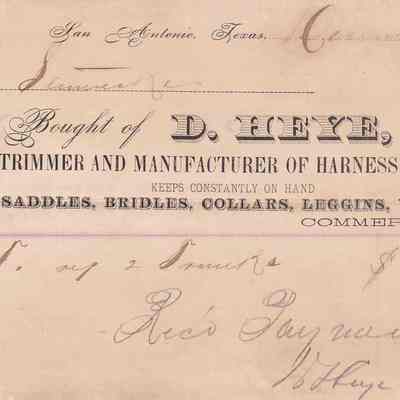 San Antonio, Texas,
Bought of D. HEYE,
TRIMMER AND MANUFACTURER OF HARNESS
KEEPS CONSTANTLY ON HAND
SADDLES, BRIDLES, COLLARS, LEGGINS,
COMMER
2 Trunks $
Rec'd Paymen
D Heye